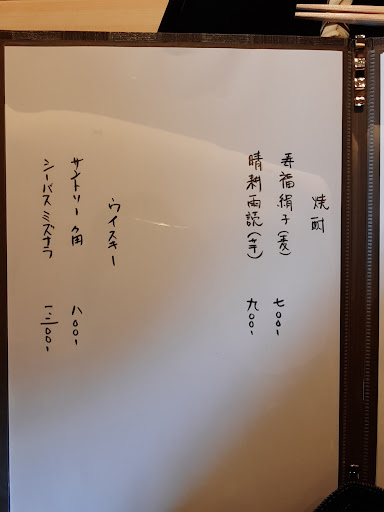 焼酎
寿福絹子(麦) 七〇〇、
晴耕雨読(芋) 九〇〇、
ウイスキー
サントリー角 八〇〇、
シーバスミズナラ 一二〇〇、